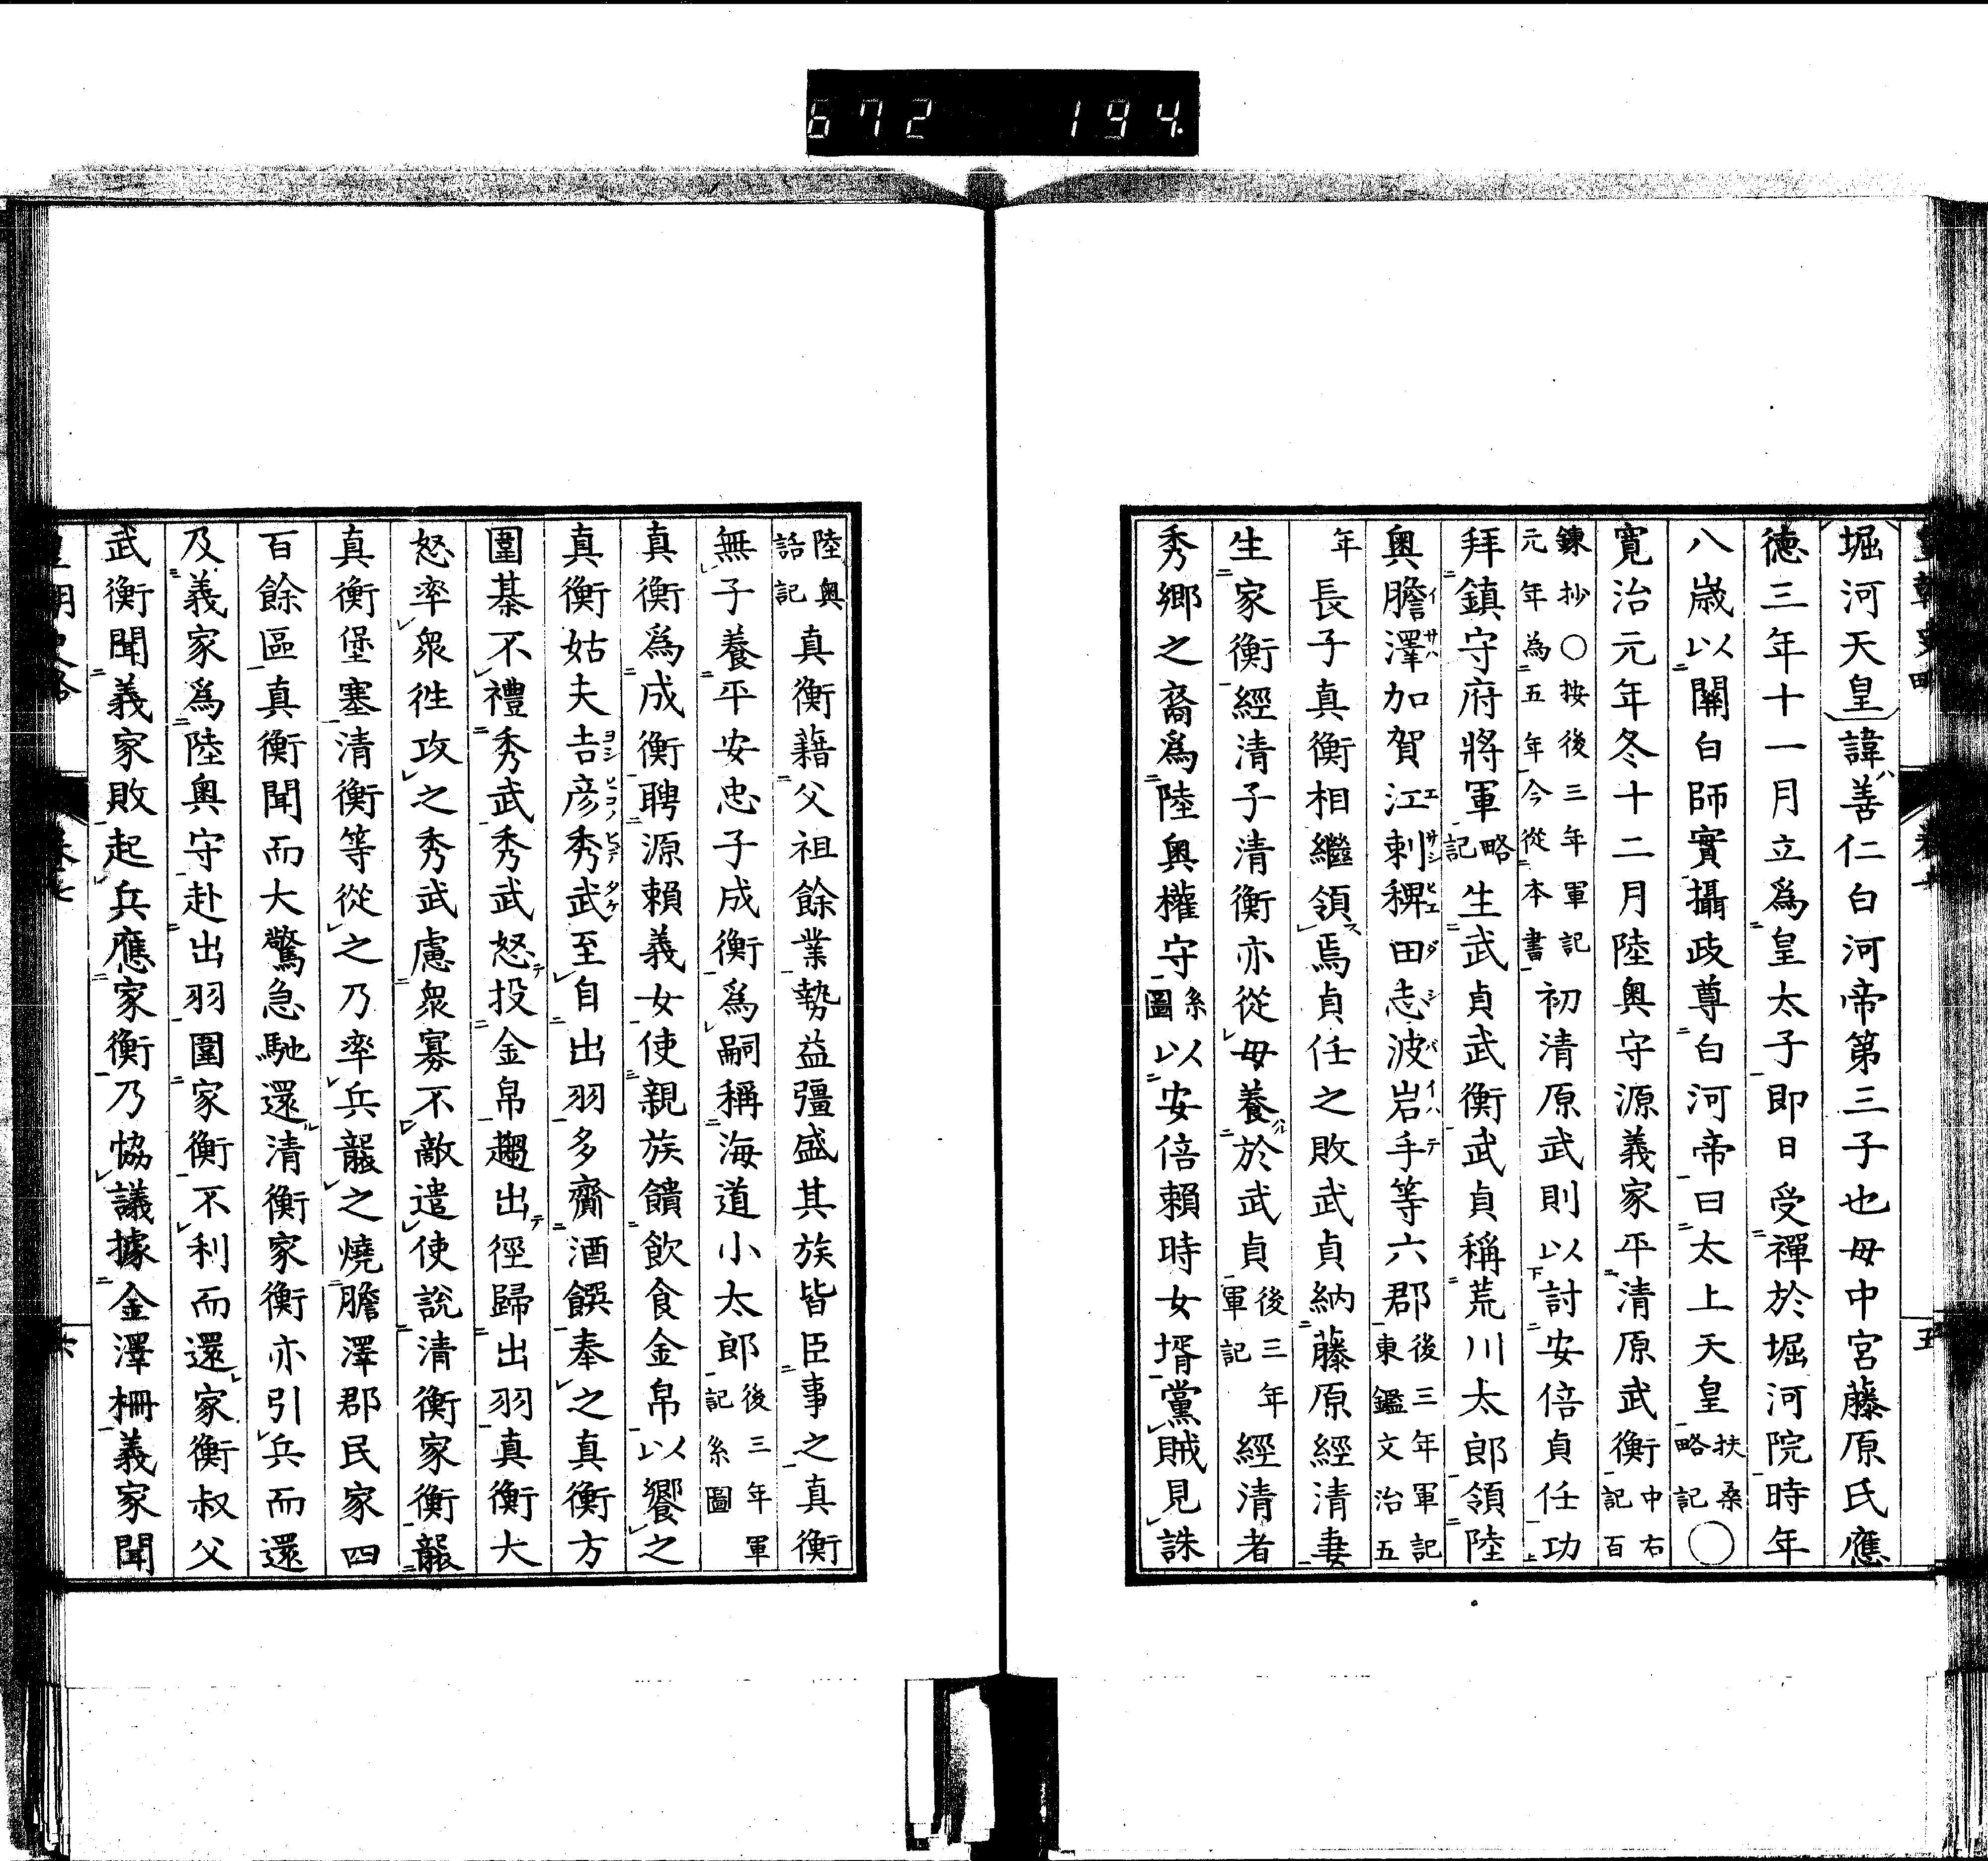 672 194
堀河天皇諱善仁白河帝第三子也母中宮藤原氏應
徳三年十一月立爲皇太子即日受禪於堀河院時年
八歳以關白師實攝政尊白河帝曰太上天皇扶桑略記○
寛治元年冬十二月陸奥守源義家平清原武衡中右記百
錬抄○按後三年軍記元年為五年今從本書初清原武則以討安倍貞任功
拜鎮守府將軍略記生武貞武衡武貞稱荒川太郎領陸
奥膽澤加賀江刺稗田志波岩手等六郡後三年軍記東鑑文治五
年長子真衡相繼領焉貞任之敗武貞納藤原經清妻
生家衡經清子清衡亦從母養於武貞後三年軍記經清者
秀郷之裔爲陸奥權守系圖以安倍頼時女壻黨賊見誅
陸奥話記真衡藉父祖餘業勢益彊盛其族皆臣事之真衡
無子養平安忠子成衡爲嗣稱海道小太郎後三年軍記系圖
真衡爲成衡聘源頼義女使親族饋飲食金帛以饗之
真衡姑夫吉彦秀武至自出羽多齎酒饌奉之真衡方
圍棊不禮秀武秀武怒投金帛趨出徑歸出羽真衡大
怒率衆徃攻之秀武慮衆寡不敵遣使説清衡家衡襲
真衡堡塞清衡等從之乃率兵襲之燒膽澤郡民家四
百餘區真衡聞而大驚急馳還清衡家衡亦引兵而還
及義家爲陸奥守赴出羽圍家衡不利而還家衡叔父
武衡聞義家敗起兵應家衡乃協議據金澤柵義家聞